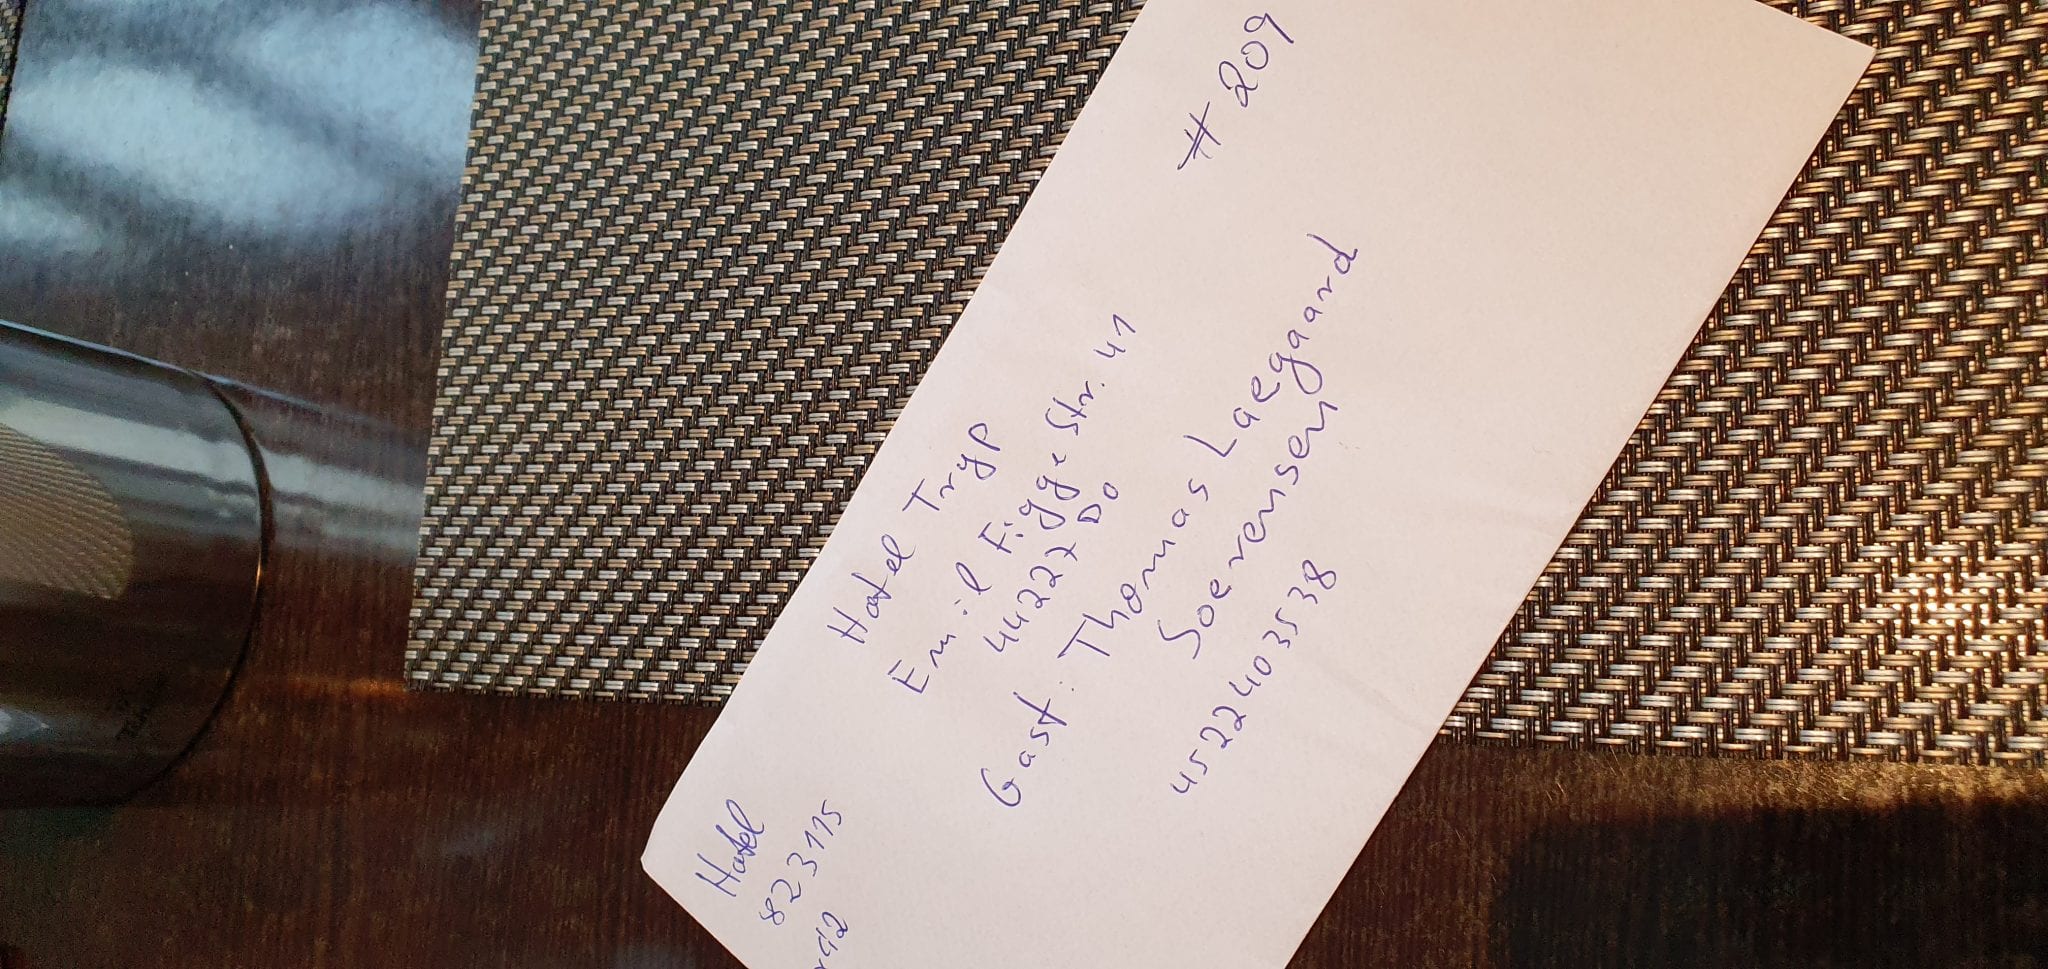 # 209
Hotel Tryp
Emil Figge Str. 41
44227 Do
Gast: Thomas Laegaard
Soerensen
4522403538
Hotel
823115